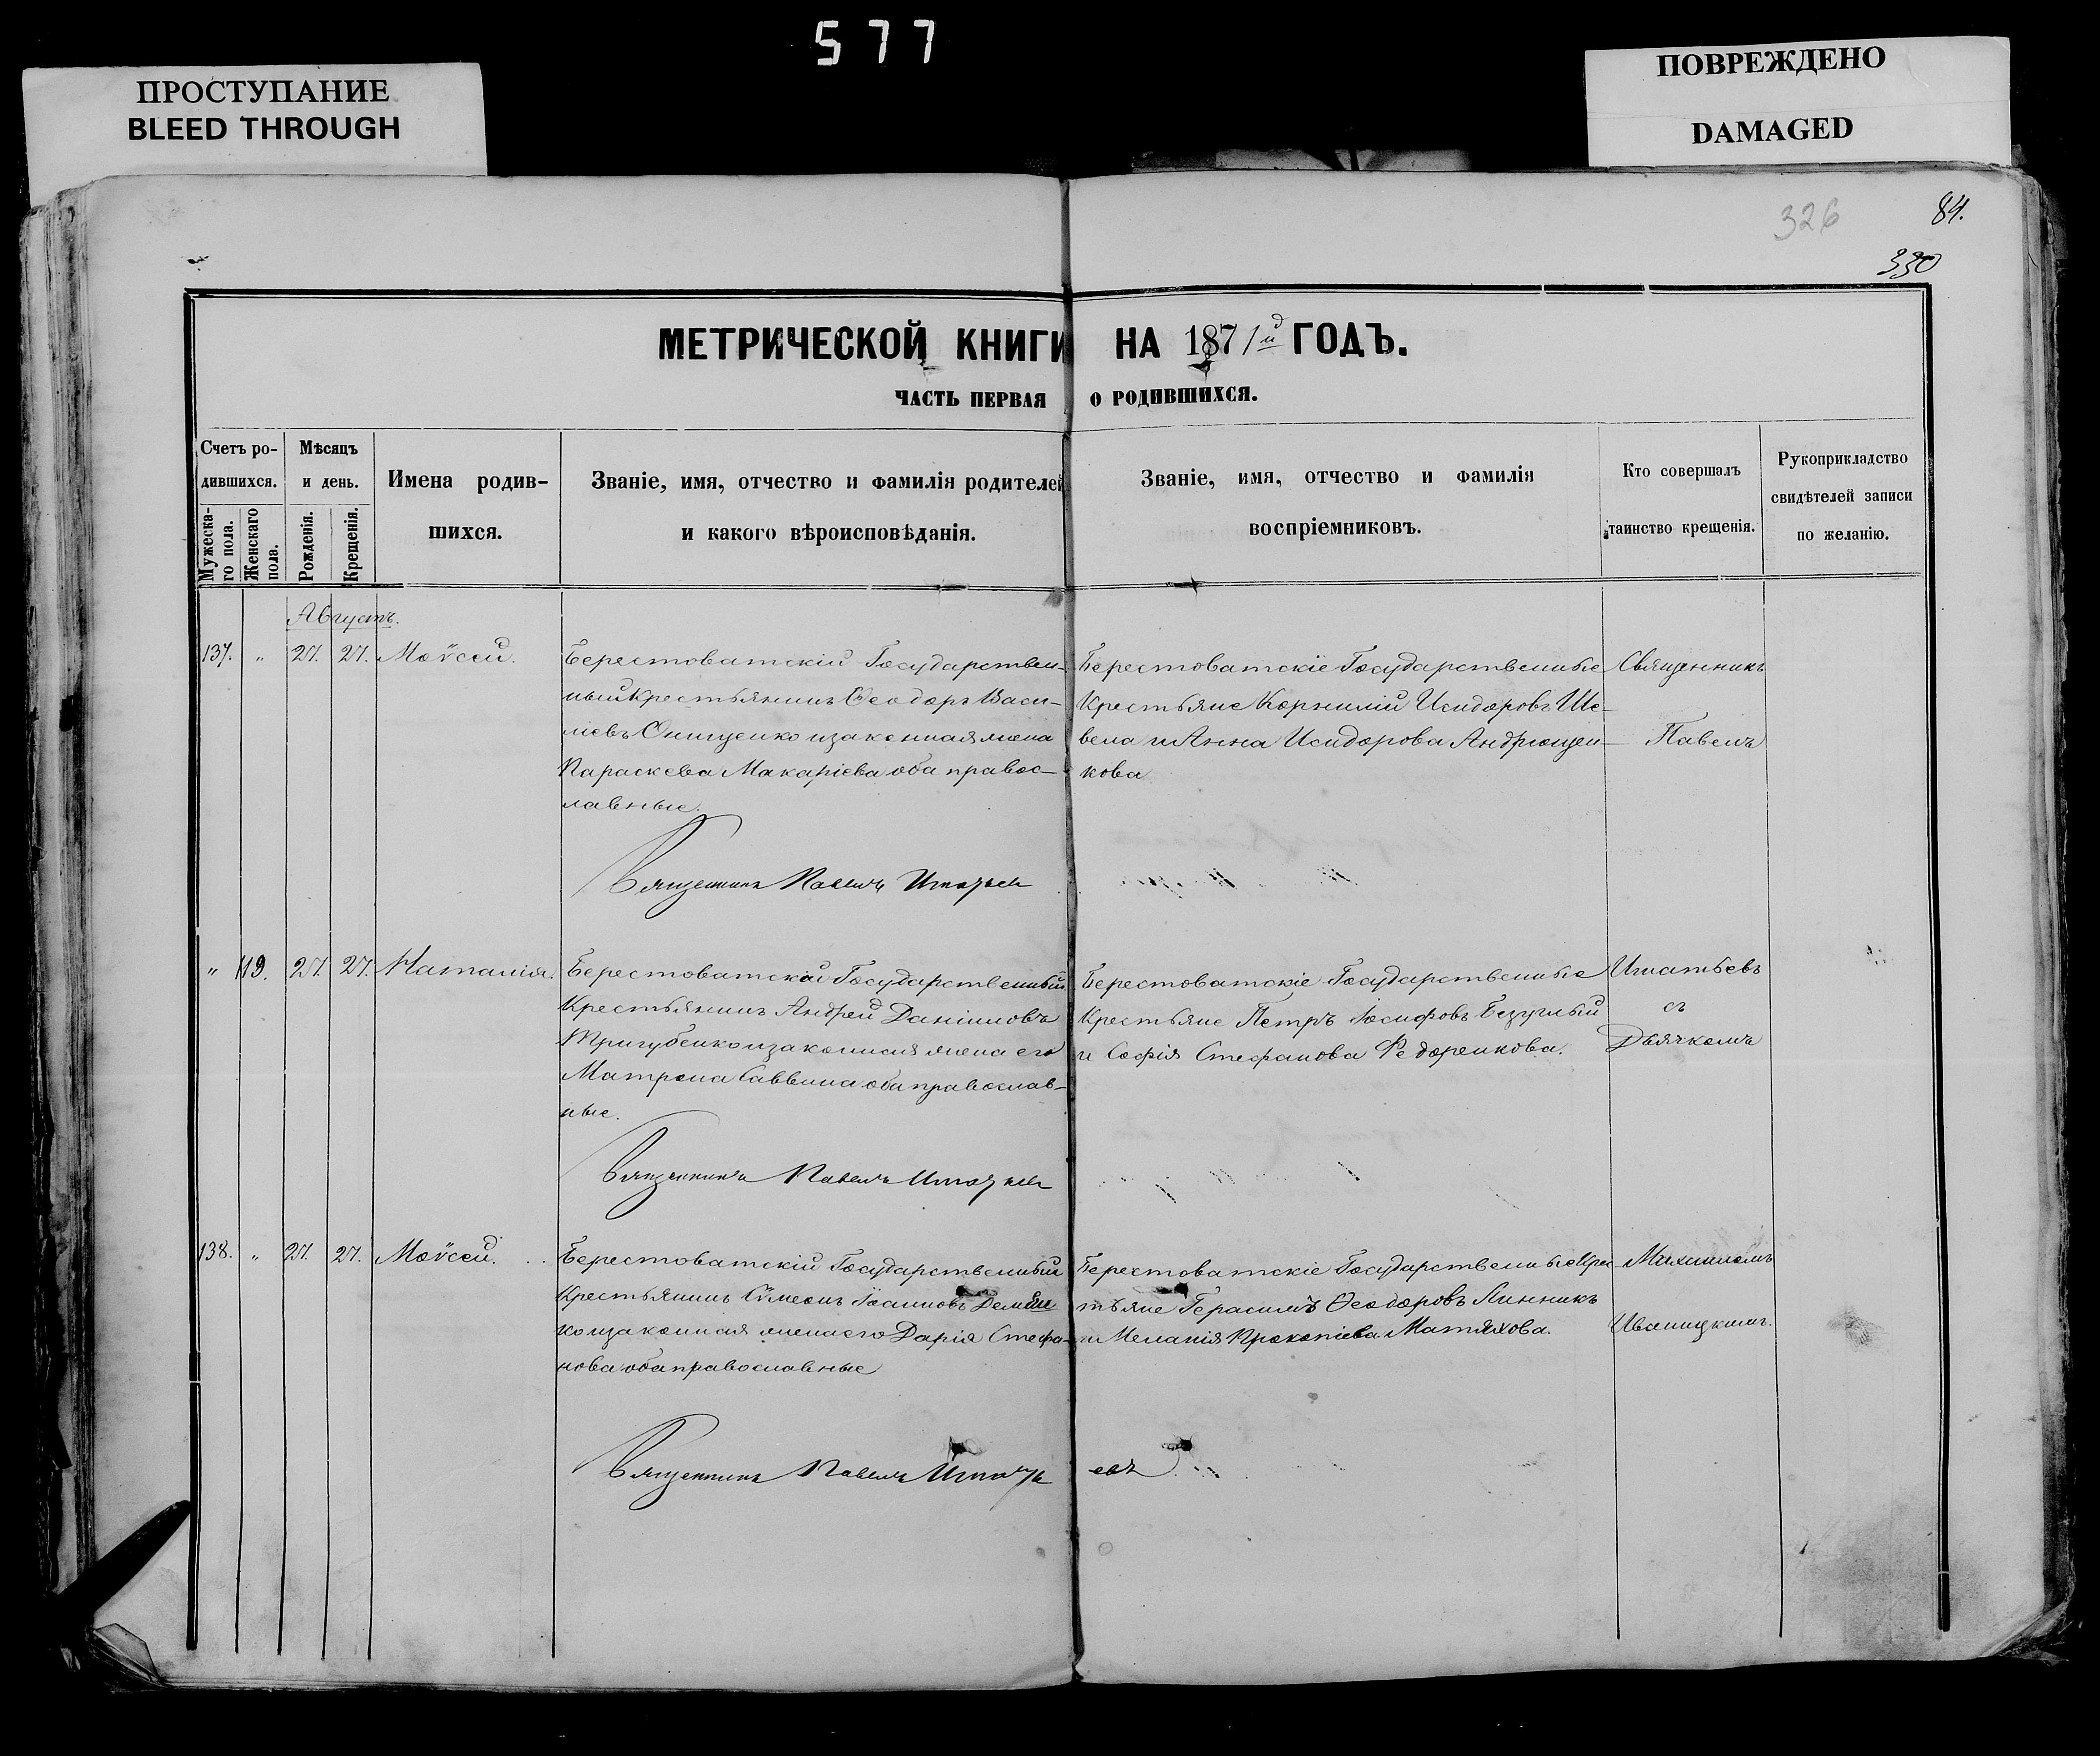 577
ПРОСТУПАНИЕ
BLEED THROUGH
ПОВРЕЖДЕНО
DAMAGED
326
84.
330
МЕТРИЧЕСКОЙ КНИГИ НА 1871й ГОДЪ.
ЧАСТЬ ПЕРВАЯ О РОДИВШИХСЯ.
Счетъ ро-
дившихся.
Мужеска-
го пола.
Женскаго
пола.
Мѣсяцъ
и день.
Рожденія.
Крещенія.
Имена родив-
шихся.
Званіе, имя, отчество и фамилія родителей
и какого вѣроисповѣданія.
Званіе, имя, отчество и фамилія
воспріемниковъ.
Кто совершалъ
таинство крещенія.
Рукоприкладство
свидѣтелей записи
по желанію.
Августъ.
137. „ 27. 27. Моѵсей.
Берестоватскій Государствен-
ный Крестьянинъ Ѳеодоръ Васи-
ліевъ Онищенко и законная жена
Параскева Макаріева оба правос-
лавные.
Священникъ Павелъ Игнатьев
Берестоватскіе Государственные
Крестьяне Корнилій Исидоровъ Ше-
вела и Анна Исидорова Андрющен-
кова
Священникъ
Павелъ
„ 119. 27. 27. Наталія.
Берестоватскій Государственный
Крестьянинъ Андрей Даніиловъ
Тригубенко и законная жена его
Матрона Саввина оба православ-
ные.
Священникъ Павелъ Игнатьев
Берестоватскіе Государственные
Крестьяне Петръ Іосифовъ Безуглый
и Софія Стефанова Федоренкова.
Игнатьевъ
съ
Дьячкомъ
138. „ 27. 27. Моѵсей.
Берестоватскій Государственный
Крестьянинъ Сѵмеонъ Іоанновъ Демён
ко и законная жена его Дарія Стефа-
нова оба православные
Берестоватскіе Государственные Крес-
тьяне Герасимъ Ѳеодоровъ Линникъ
и Меланія Прокопіева Матяхова.
Михаиломъ
Иваницкимъ.
Священникъ Павелъ Игнатьевъ